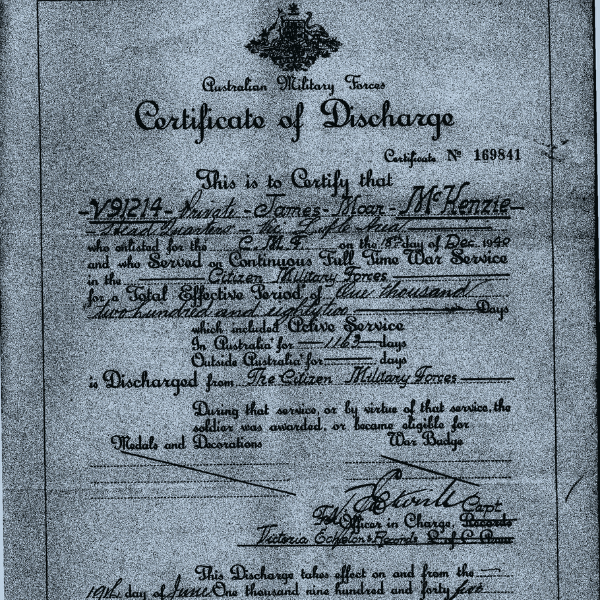 Australian Military Forces
Certificate of Discharge
Certificate No 169841
This is to Certify that
-V91214- Private - James - Moar - McKenzie-
Head Quarters -
who enlisted for the C. M. F. on the day of Dec. 1940
and who Served on Continuous Full Time War Service
in the Citizen Military Forces
for a Total Effective Period of One thousand
two hundred and eighty two Days
which included Active Service
In Australia for 1163 days
Outside Australia for days
is Discharged from The Citizen Military Forces
During that service, or by virtue of that service, the
soldier was awarded, or became eligible for
Medals and Decorations War Badge
Capt
Officer in Charge, Records
Victoria Echelon & Records L. of C. Area
This Discharge takes effect on and from the
19th day of June One thousand nine hundred and forty five